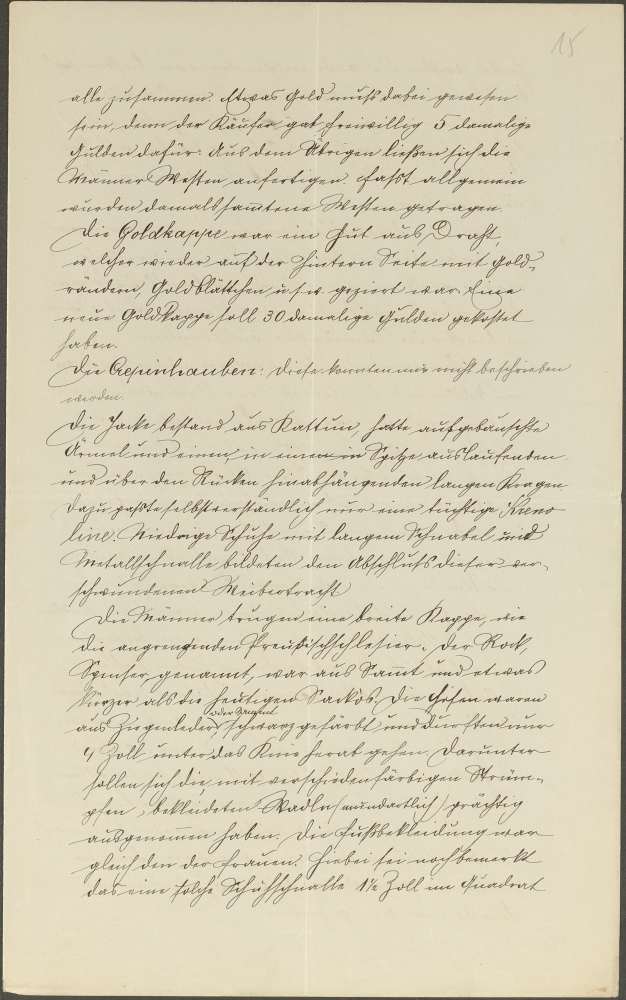 15
alle zusammen. Etwas Gold muß dabei gewesen
sein, denn der Käufer gab freiwillig 5 damalige
Gulden dafür. Aus dem Übrigen ließen sich die
Männer Westen anfertigen. Fast allgemein
wurden damals samtene Westen getragen.
Die Goldkappe war ein Hut aus Draht,
welcher wieder auf der hintern Seite mit Gold-
rändern, Goldblättchen u. s. w. geziert war. Eine
neue Goldkappe soll 30 damalige Gulden gekostet
haben.
Die Crepinhauben: diese konnten mir nicht beschrieben
werden.
Die Jacke bestand aus Kattun, hatte aufgebauschte
Ärmel und einen, in eine Spitze auslaufenden
und über den Rücken hinabhängenden langen Kragen.
Dazu paßte selbstverständlich nur eine tüchtige Kreno
line. Niedrige Schuhe mit langem Schnabel und
Metallschnalle bildeten den Abschluß dieser ver-
schwundenen Weibertracht.
Die Männer trugen eine breite Kappe, wie
die angrenzenden Preußischschlesier. Der Rock,
Spenser genannt, war aus Samt und etwas
kürzer als die heutigen Sackos. Die Hosen waren
oder Samt
aus Ziegenleder, schwarz gefärbt und durften nur
4 Zoll unter das Knie herab gehen. Darunter
sollen sich die, mit verschiedenfärbigen Strüm-
pfen, bekleideten Wadln (mundartlich) prächtig
ausgenommen haben. Die Fußbekleidung war
gleich den der Frauen. Hiebei sei noch bemerkt
das eine solche Schuhschnalle 1½ Zoll im Quadrat